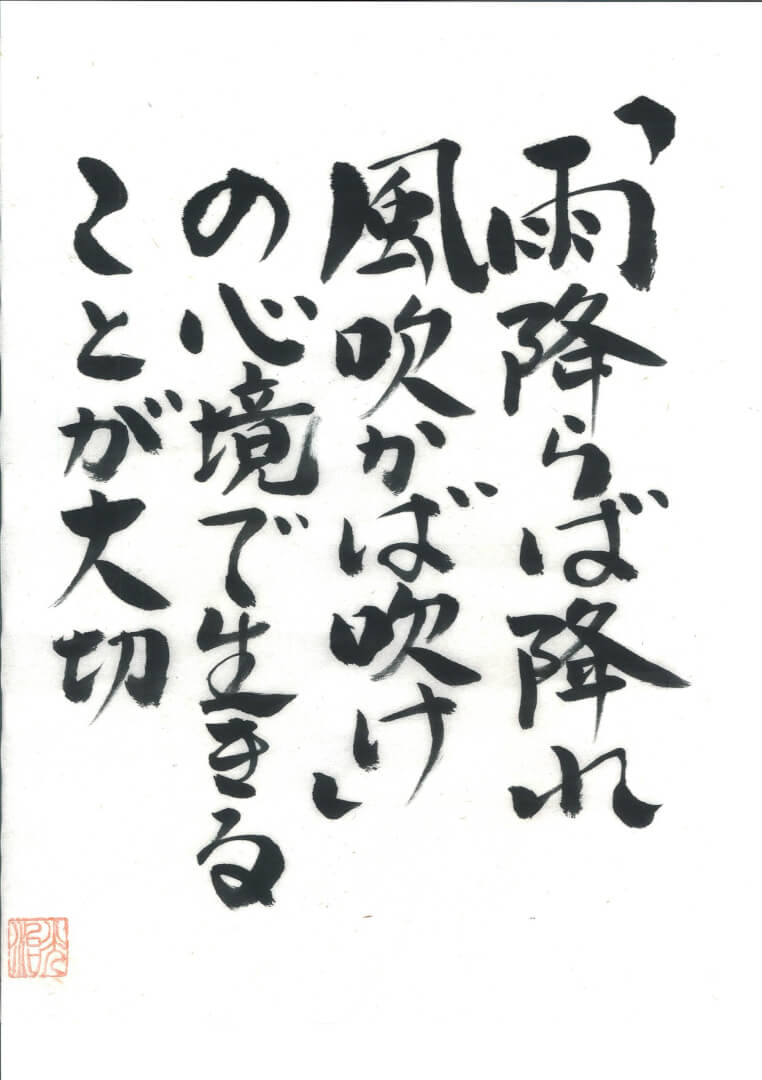 「雨降らば降れ
風吹かば吹け」
の心境で生きる
ことが大切